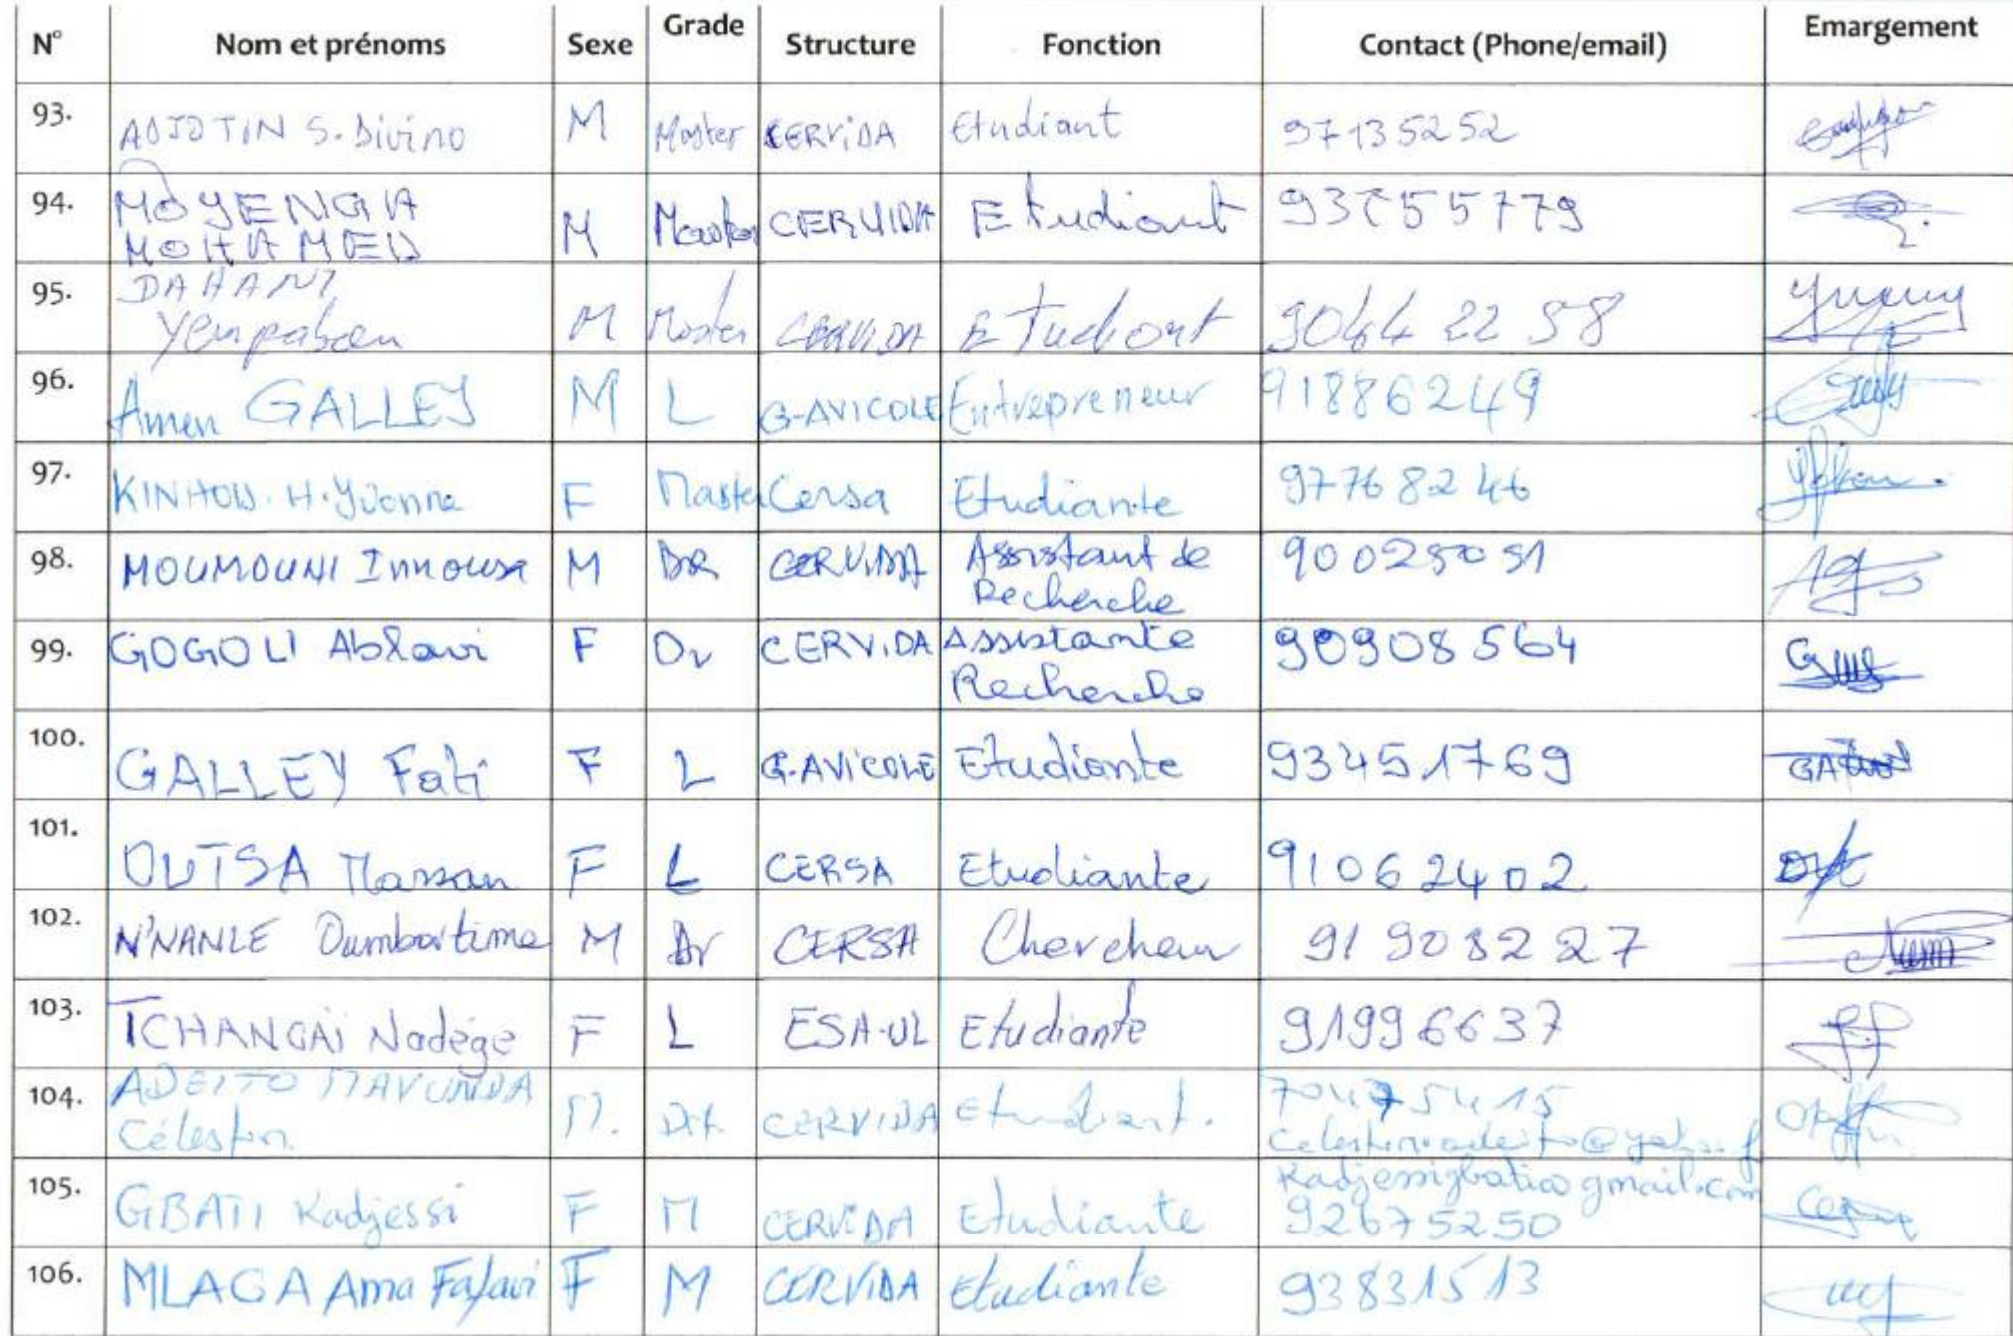 N° Nom et prénoms Sexe Grade Structure Fonction Contact (Phone/email) Emargement
93. ADJOTIN S. Divino M Master CERViDA Etudiant 97135252
94. MOYENGA MOHAMED M Master CERVIDA Etudiant 93755779
95. DAHANI Yempabou M Master CERVIDA Etudiant 9044 22 98
96. Amen GALLEY M L G-AVICOLE Entrepreneur 91886249
97. KINHOU. H. Yvonne F Master Cersa Etudiante 97768246
98. MOUMOUNI Innousa M DR CERVIDA Assistant de Recherche 90025051
99. GOGOLI Ablavi F Dr CERVIDA Assistante Recherche 90908564
100. GALLEY Fati F L G.AVICOLE Etudiante 93451769
101. OUTSA Massan F L CERSA Etudiante 91062402
102. N'NANLE Oumbortime M Dr CERSA Chercheur 91908227
103. TCHANGAï Nadège F L ESA-UL Etudiante 91996637
104. ADEITO MAVUNDA Célestin M. CERVIDA Etudiant. 70475415
105. GBATI Kadjessi F M CERViDA Etudiante kadjessigbati@gmail.com 92675250
106. MLAGA Ama Fafavi F M CERVIDA Etudiante 93831513